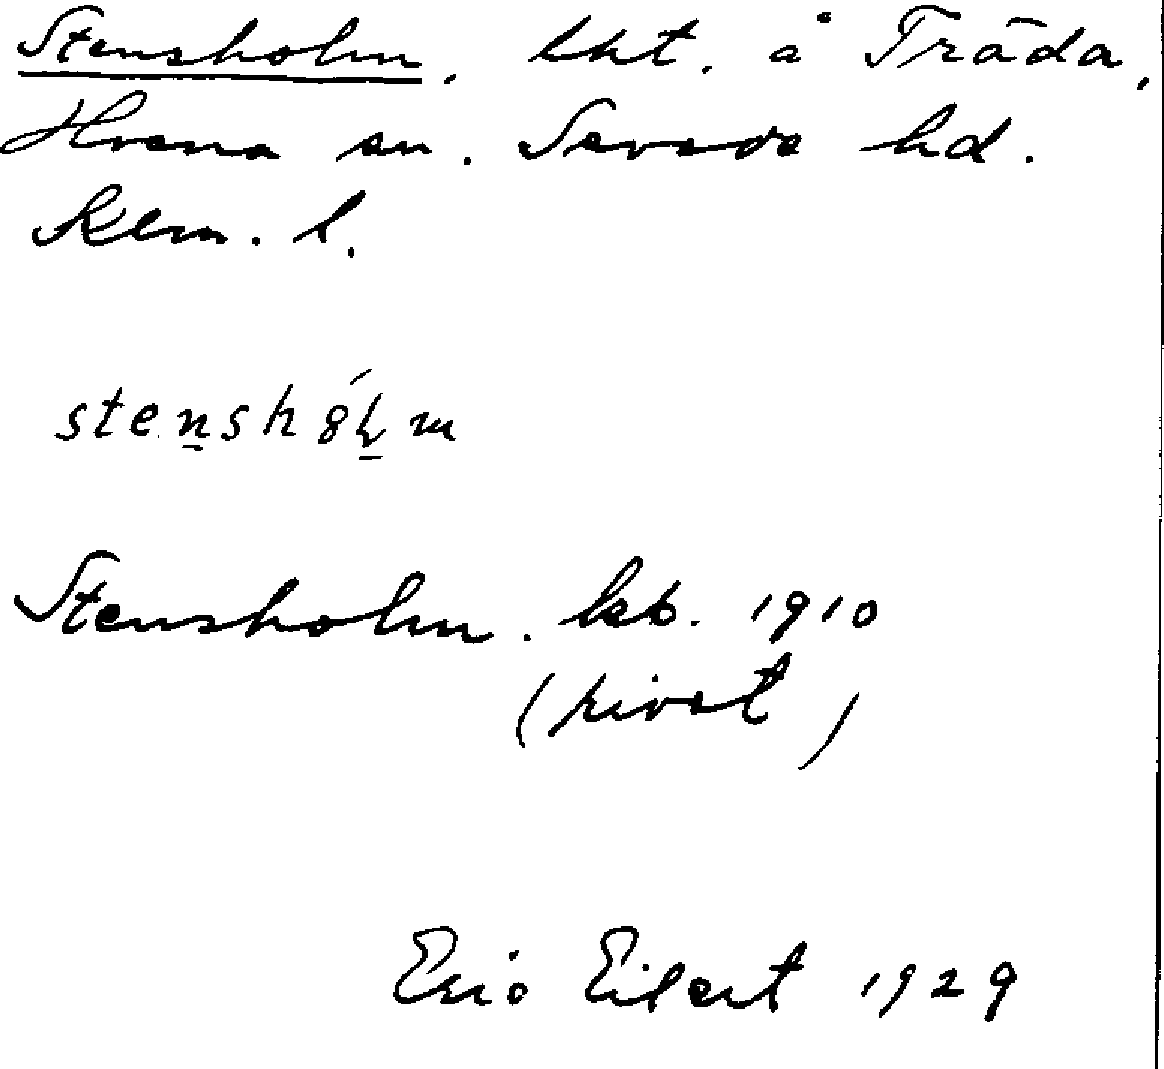 Stensholm. lht. å Träda,
Hvena sn. Sevede hd.
Klm. l.
Stensholm. kb. 1910
(rivet)
Eric Eilert 1929